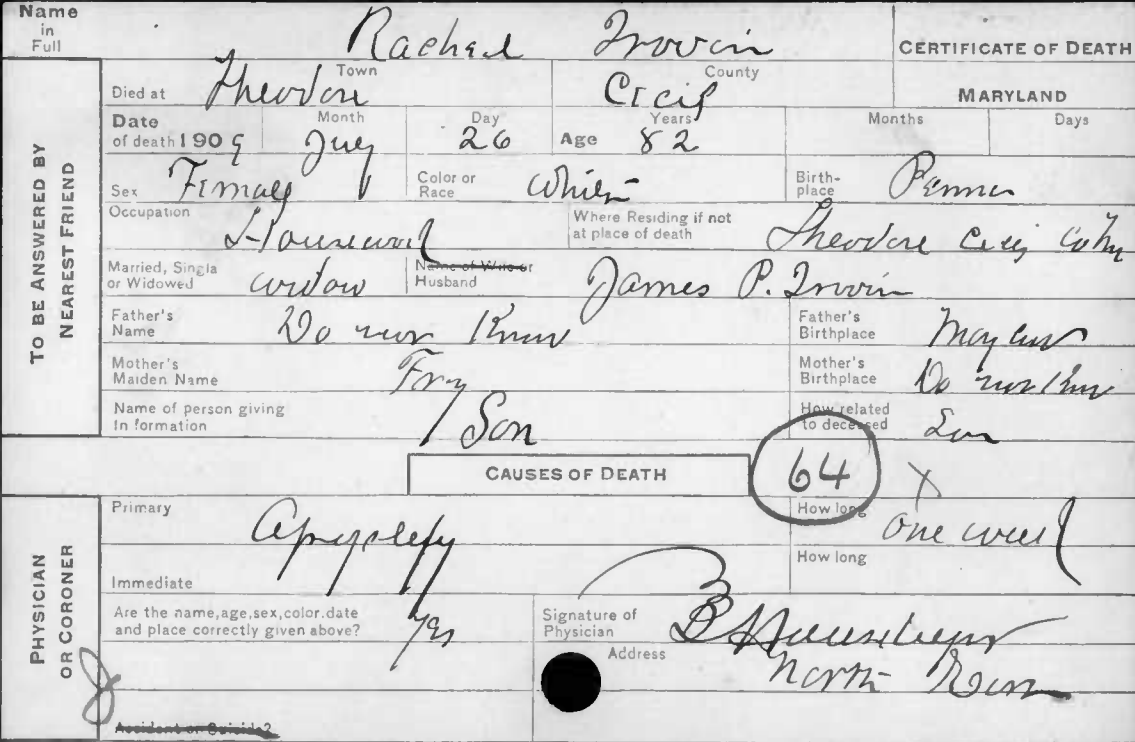 Name in Full Rachael Irwin
CERTIFICATE OF DEATH
MARYLAND
TO BE ANSWERED BY NEAREST FRIEND
Died at Theodore Town Cecil County
Date of death 1909 Month July Day 26 Age Years 82 Months Days
Sex Female Color or Race White Birth-place Penna
Occupation Housework Where Residing if not at place of death Theodore Cecil Co Md
Married, Single or Widowed widow Name of Wife or Husband James P. Irwin
Father's Name Do not Know Father's Birthplace
Mother's Maiden Name Fry Mother's Birthplace Do not Know
Name of person giving In formation Son How related to deceased Son
CAUSES OF DEATH 64 X
PHYSICIAN OR CORONER
Primary Apoplexy How long one week
Immediate How long
Are the name, age, sex, color. date and place correctly given above? Yes Signature of Physician
Address North East
Accident or Suicide?